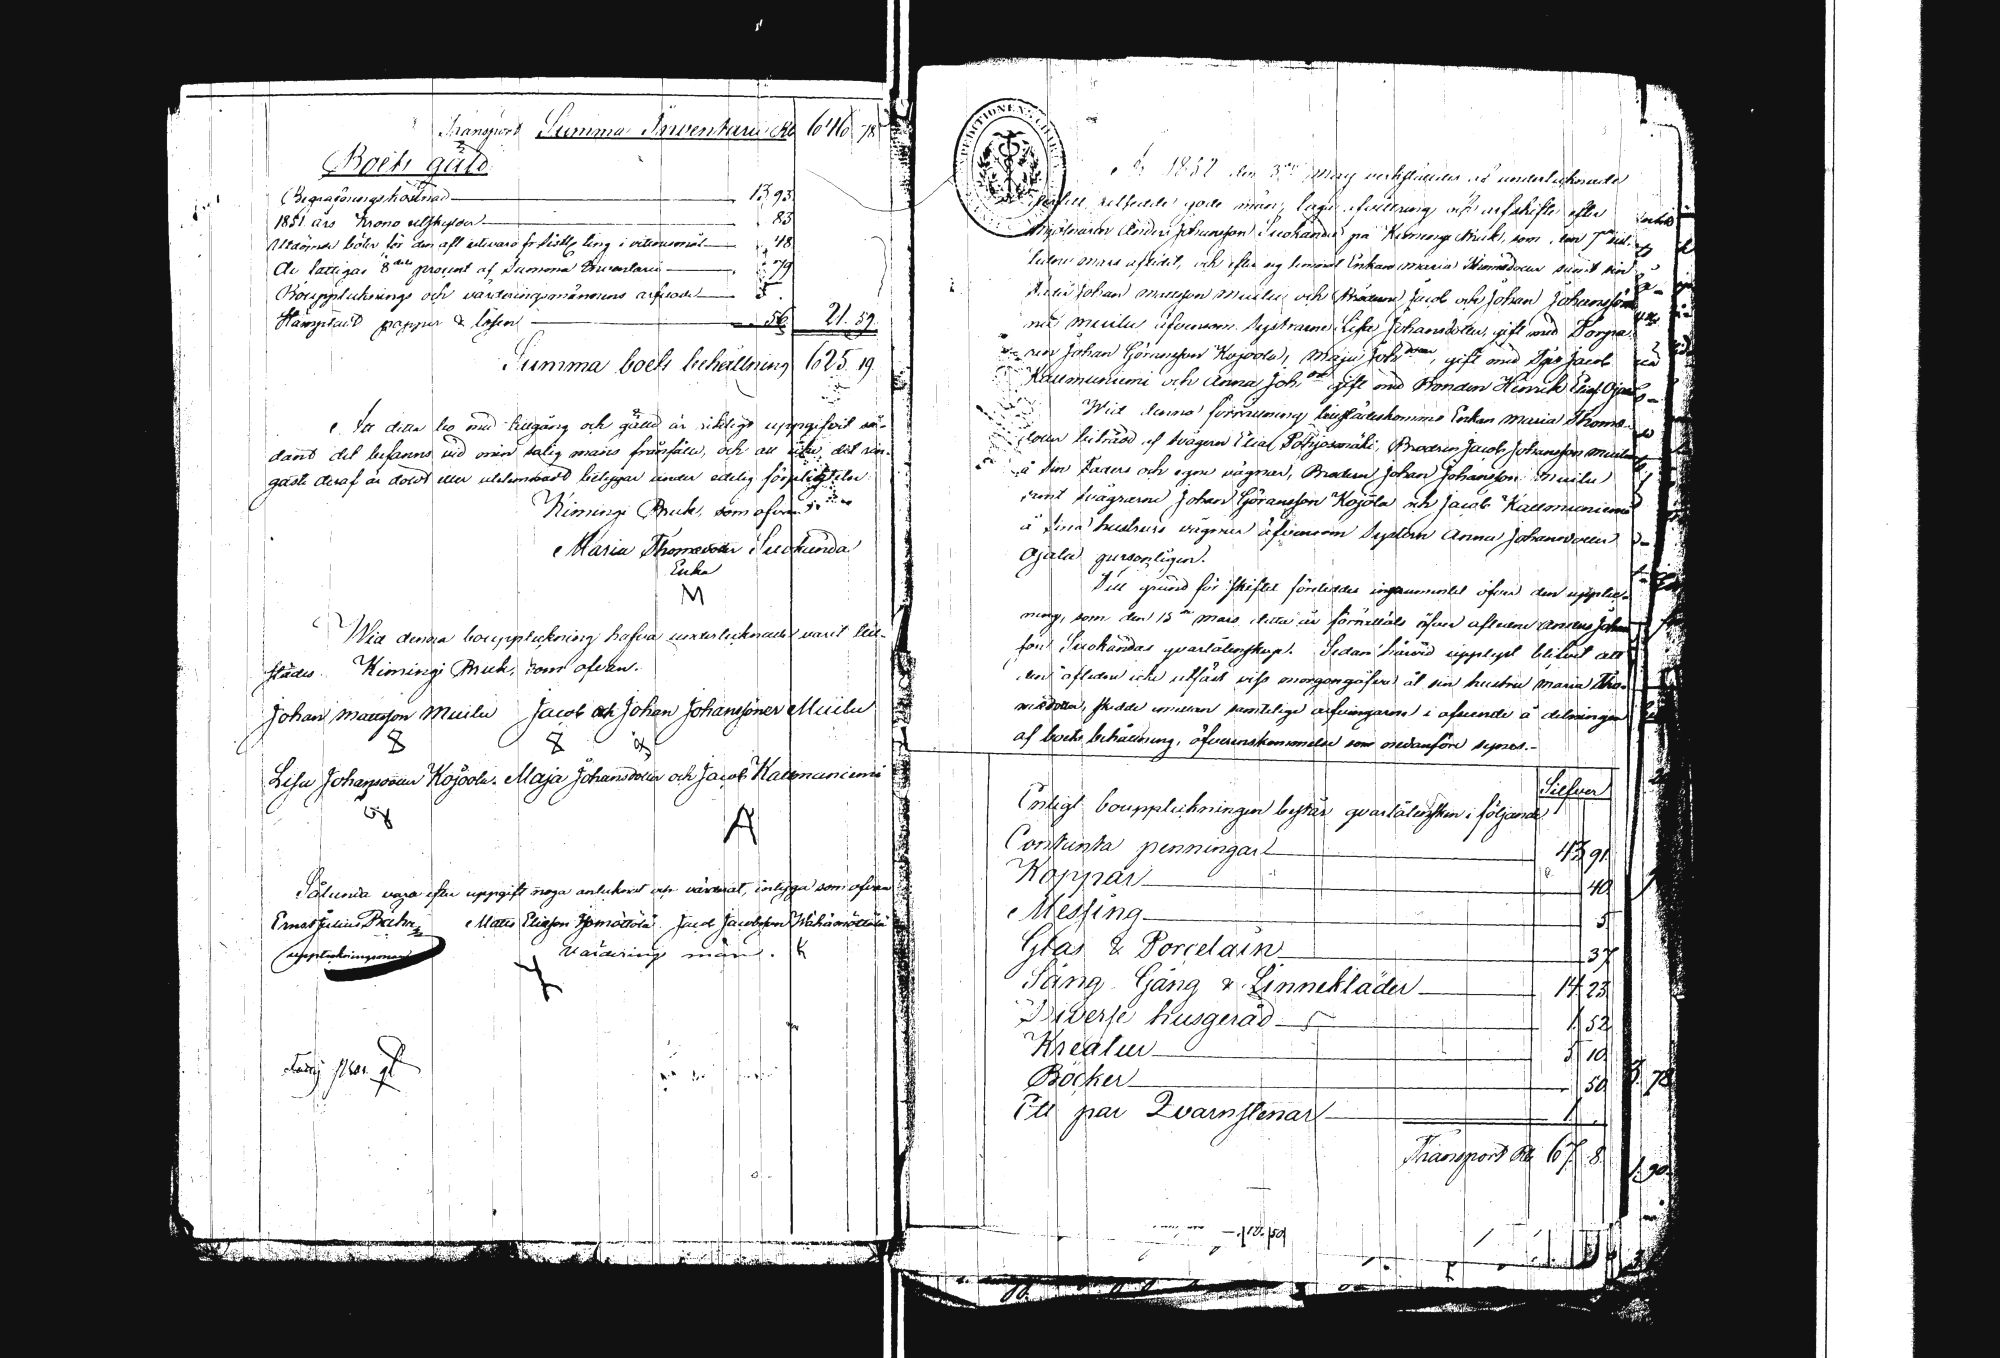 Transport Summa Inventarii Rb 646 78
Boets gäld
Begrafningskostnad 13 93
1851 års Krono utskylder 83
48
De fattigas 8dels procent af Summa Inventarii 79
Boupptecknings och värderingsmännens arfvode 5
papper & lösen 56 21.59
Summa boets behållning 625 19
Att detta bo med tillgång och gäld är riktigt uppgifvit så-
dant det befanns vid min salig mans frånfälle, och att icke det rin-
gaste deraf är doldt eller undansnadt betygar under edelig förpligtelse
Kimingi Bruk, som ofvan
Maria Thomasdotter Suokunda
Enka
M
Wid denna bouppteckning hafva undertecknade varit till-
städes. Kimingi Bruk, som ofvan.
Johan Mattsson Muilu Jacob och Johan Johanssöner Muilu
Lisa Johansdotter Kojoola. Maja Johansdotter och Jacob Kattmuniemi
Sålunda vara efter uppgift noga antecknat och värderat, intyga som ofvan
Ernst Julius Bæhr Matts Eliasson Jacob Jacobsson
uppteckningsman Värdering män. K
År 1852 den 3die Maij verkställdes af undertecknade
gode män, laga afvittring och arfskifte efter
Anders Johansson Suokanda på Kimingi Bruk, som den 7de
mars aflidit, och efter sig lemnat Enkan Maria Thomasdotter samt sin
Fader Johan Mattsson Muilu och Bröderne Jacob och Johan Johanssöner
Muilu äfvensom Systrarne Lisa Johansdotter, gift med Torpa-
ren Johan Göransson Kojoola, Maja Johsdotter, gift med Jacob
Kattmuniemi och Anna Johsdr gift med Bonden Henrik
Wid denna förrättning tillstädeskommo Enkan Maria Thomas-
dotter biträdd af Svågern Elias Pohjosmäki, Brodren Jacob Johansson Muilu
å sin Faders och egna vägnar, Brodren Johan Johansson Muilu
samt Svågrarne Johan Göransson Kojola och Jacob Kattmuniemi
å sina hustrurs vägnar äfvensom Systern Anna Johansdotter
Ojala personligen.
Till grund för skiftet företeddes instrumentet öfver den uppteck-
ning, som den 15de mars detta år förrättats öfver aflidne Anders Johans
son Suokandas qvarlåtenskap. Sedan härvid upplyst blifvit att
den aflidne icke utfäst viss morgongåfva åt sin hustru Maria Tho-
masdotter, skedde emellan samtelige arfvingarne i afseende å delningen
af boets behållning, öfverenskommelse som nedanföre synes.-
Silfver
Enligt bouppteckningen består qvarlåtensken i följande
Contanta penningar 43 91
Koppar 40
Messing 5
Glas & Porcelain 37
Säng Gång & Linnekläder 14 23
Diverse husgeråd 1 52
Kreatur 5 10
Böcker 50
Ett par Qvarnstenar 1
Transport Rb 67 8